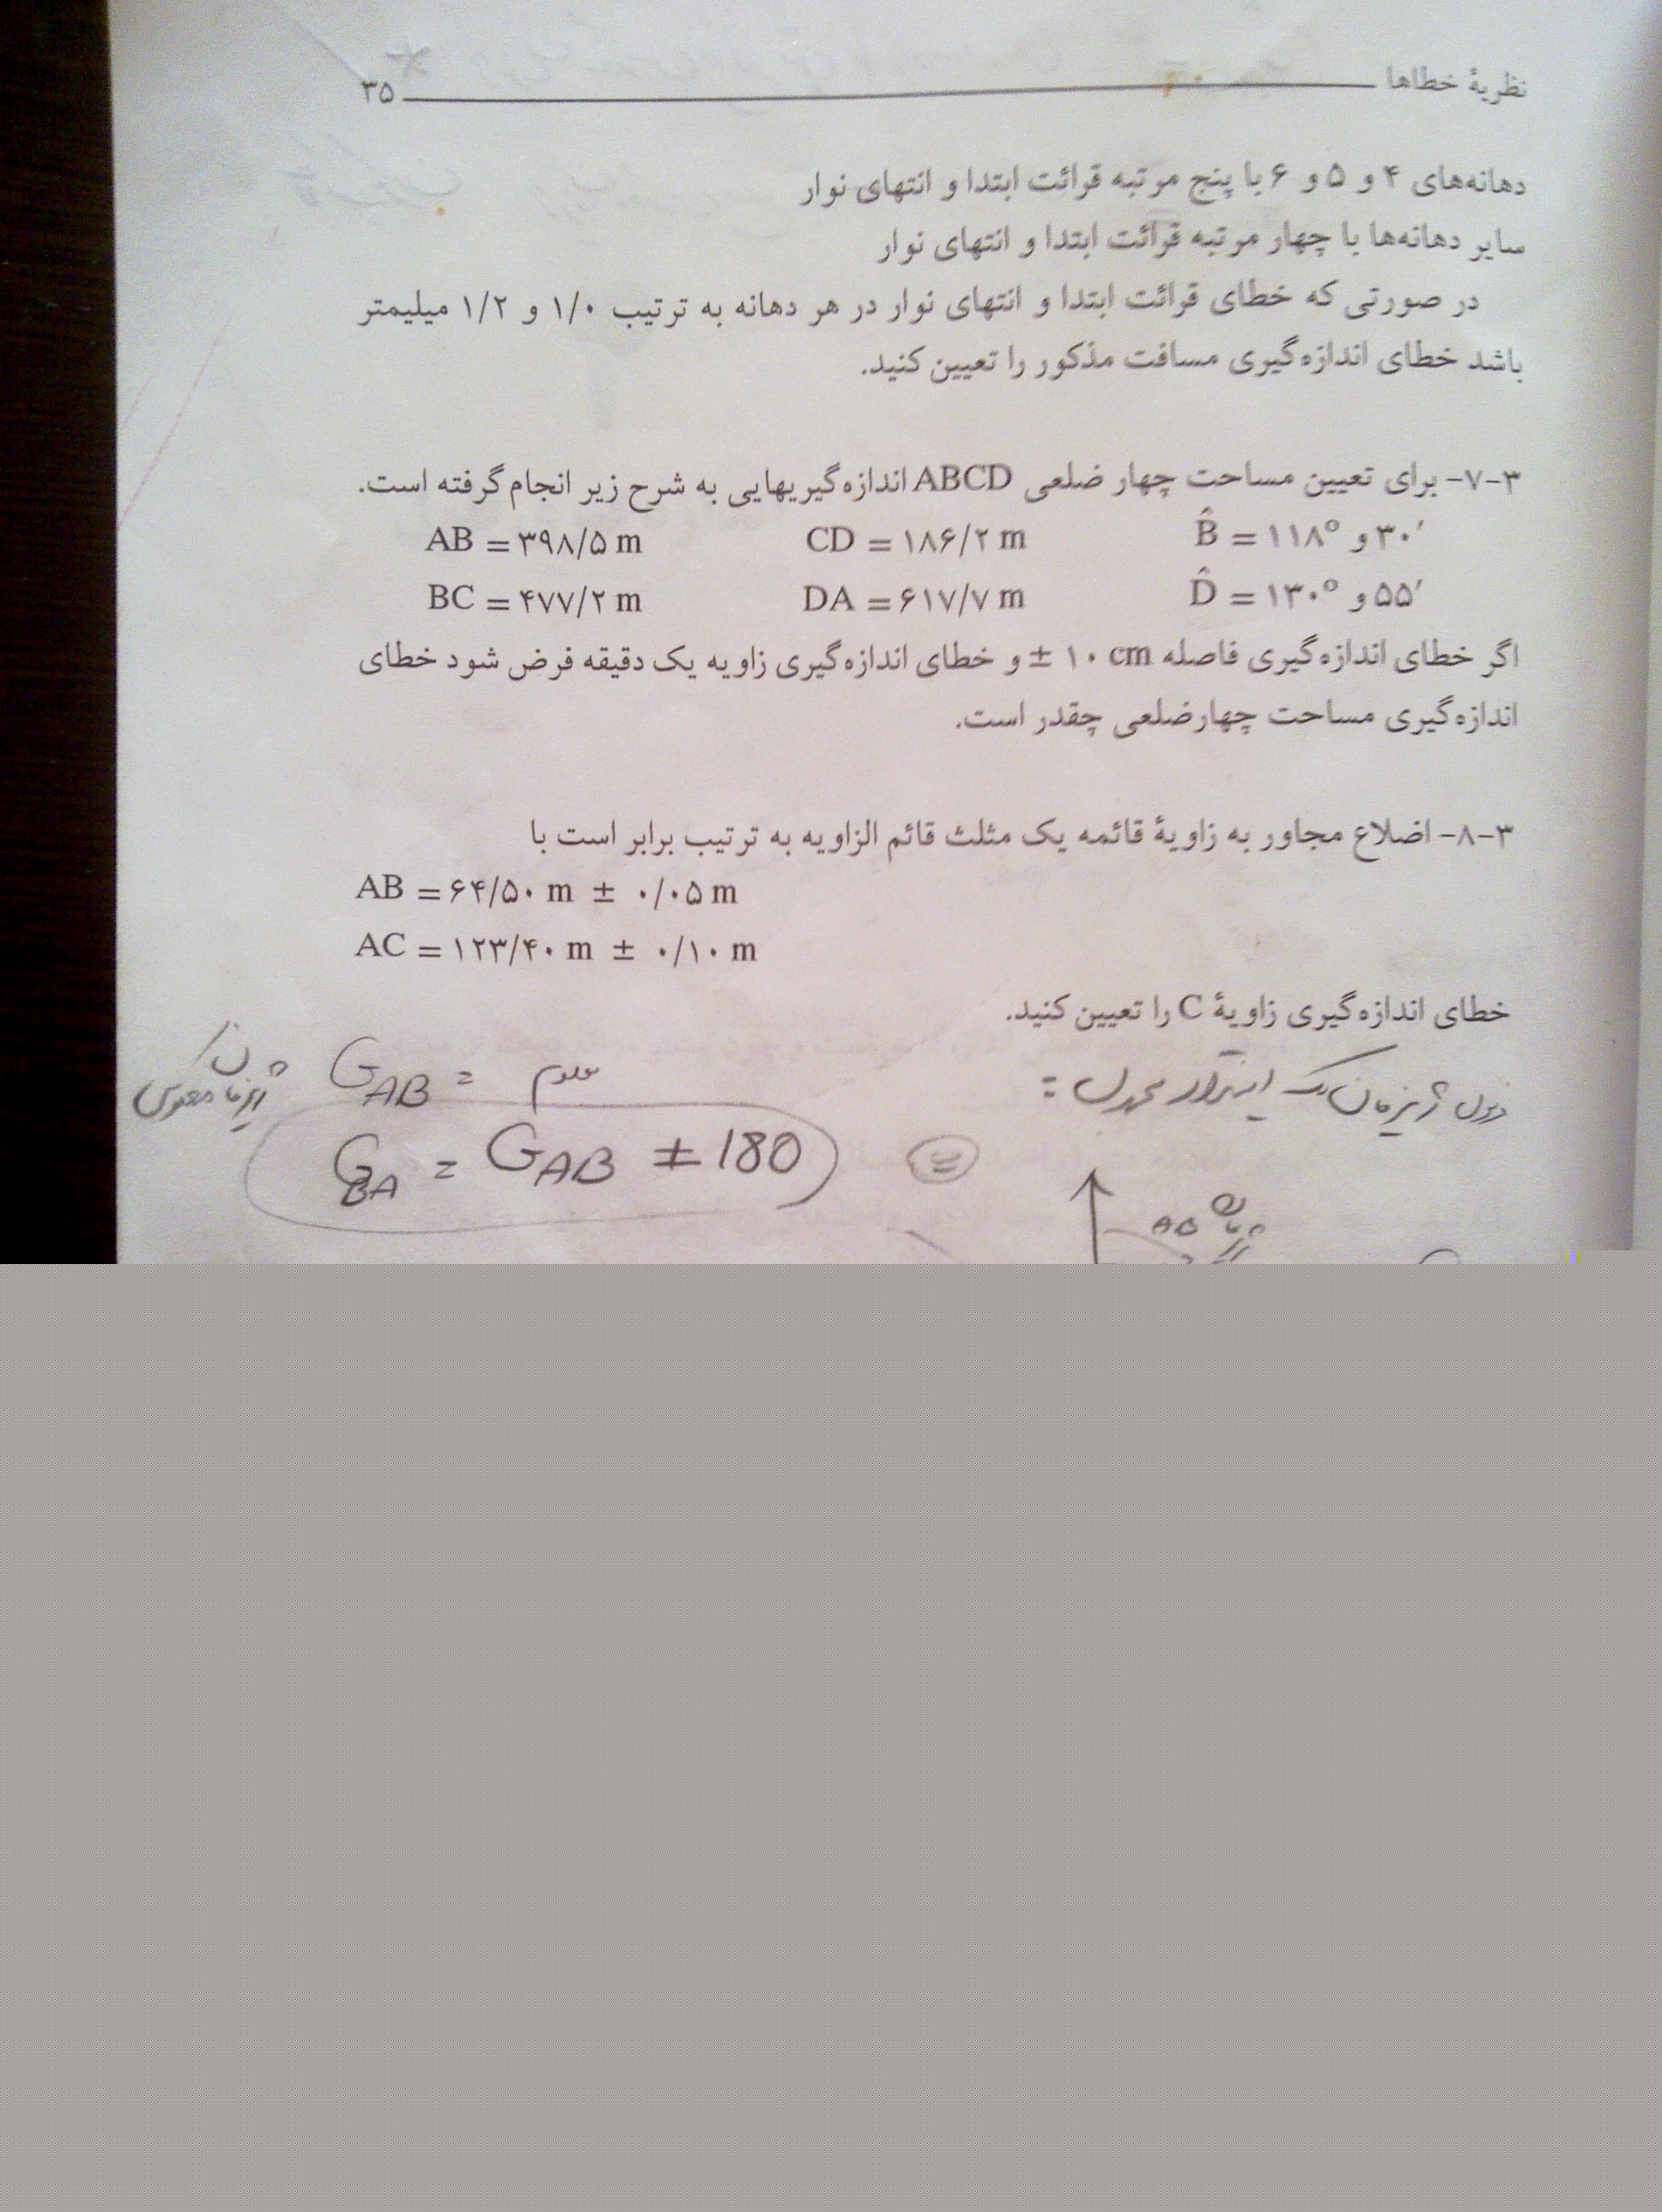 نظریهٔ خطاها ۳۵
دهانه‌های ۴ و ۵ و ۶ با پنج مرتبه قرائت ابتدا و انتهای نوار
سایر دهانه‌ها با چهار مرتبه قرائت ابتدا و انتهای نوار
در صورتی که خطای قرائت ابتدا و انتهای نوار در هر دهانه به ترتیب ۱/۰ و ۱/۲ میلیمتر
باشد خطای اندازه‌گیری مسافت مذکور را تعیین کنید.
۳-۷- برای تعیین مساحت چهار ضلعی ABCD اندازه‌گیریهایی به شرح زیر انجام گرفته است.
AB = ۳۹۸/۵ m CD = ۱۸۶/۲ m B̂ = ۱۱۸° و ۳۰′
BC = ۴۷۷/۲ m DA = ۶۱۷/۷ m D̂ = ۱۳۰° و ۵۵′
اگر خطای اندازه‌گیری فاصله ± ۱۰ cm و خطای اندازه‌گیری زاویه یک دقیقه فرض شود خطای
اندازه‌گیری مساحت چهارضلعی چقدر است.
۳-۸- اضلاع مجاور به زاویهٔ قائمه یک مثلث قائم الزاویه به ترتیب برابر است با
AB = ۶۴/۵۰ m ± ۰/۰۵ m
AC = ۱۲۳/۴۰ m ± ۰/۱۰ m
خطای اندازه‌گیری زاویهٔ C را تعیین کنید.
G_AB = معلوم
G_BA = G_AB ± 180
ژیزمان AB